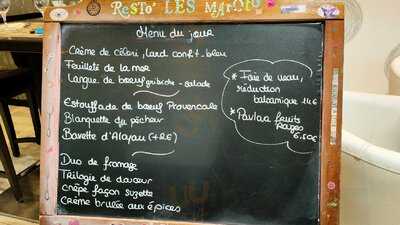 RESTO' LES MAROTO
Menu du jour
Crème de céleri, lard confit-bleu
Feuilleté de la mer
Langue de bœuf gribiche - salade
Estouffade de bœuf Provençale
Blanquette du pêcheur
Bavette d'Aloyau (+2€)
Duo de fromage
Trilogie de douceur
crêpe façon suzette
Crème brulée aux épices
* Foie de veau,
réduction
balsamique 14€
* Pavlova fruits
Rouges
6.50€